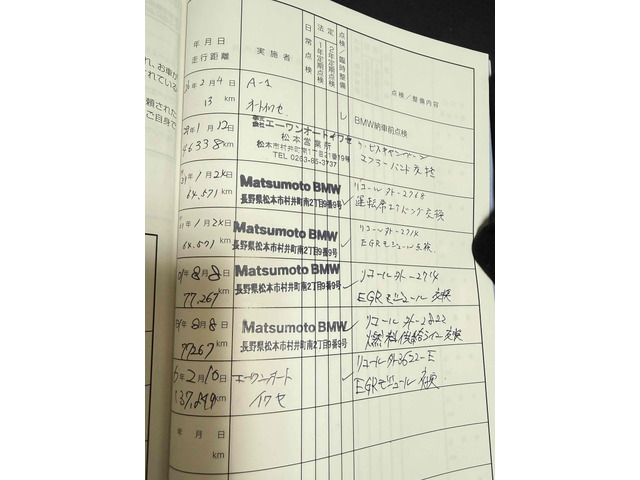 れ、お車が
されている
頼された
ご自身で
年月日
走行距離
実施者
日常点検
法定
1年定期点検
2年定期点検
点検/臨時整備
点検/整備内容
26年2月4日
13 km
A-1
オートイワセ
レ
BMW納車前点検
29年1月12日
46338 km
株式会社エーワンオートイワセ
松本営業所
松本市村井町南1丁目21番19号
TEL 0263-86-3737
マフラーバンド交換
31年1月24日
64,571 km
Matsumoto BMW
長野県松本市村井町南2丁目9番9号
リコール 外-2768
運転席エアバッグ交換
31年1月24日
64,571 km
Matsumoto BMW
長野県松本市村井町南2丁目9番9号
リコール 外-2714
EGRモジュール点検
01年8月8日
77,267 km
Matsumoto BMW
長野県松本市村井町南2丁目9番9号
リコール 外-2714
EGRモジュール 交換
年8月8日
77267 km
Matsumoto BMW
長野県松本市村井町南2丁目9番9号
リコール 外-2822
燃料供給 交換
6年2月10日
km
エーワンオート
イワセ
リコール外3622-E
EGRモジュール 交換
年月日
km